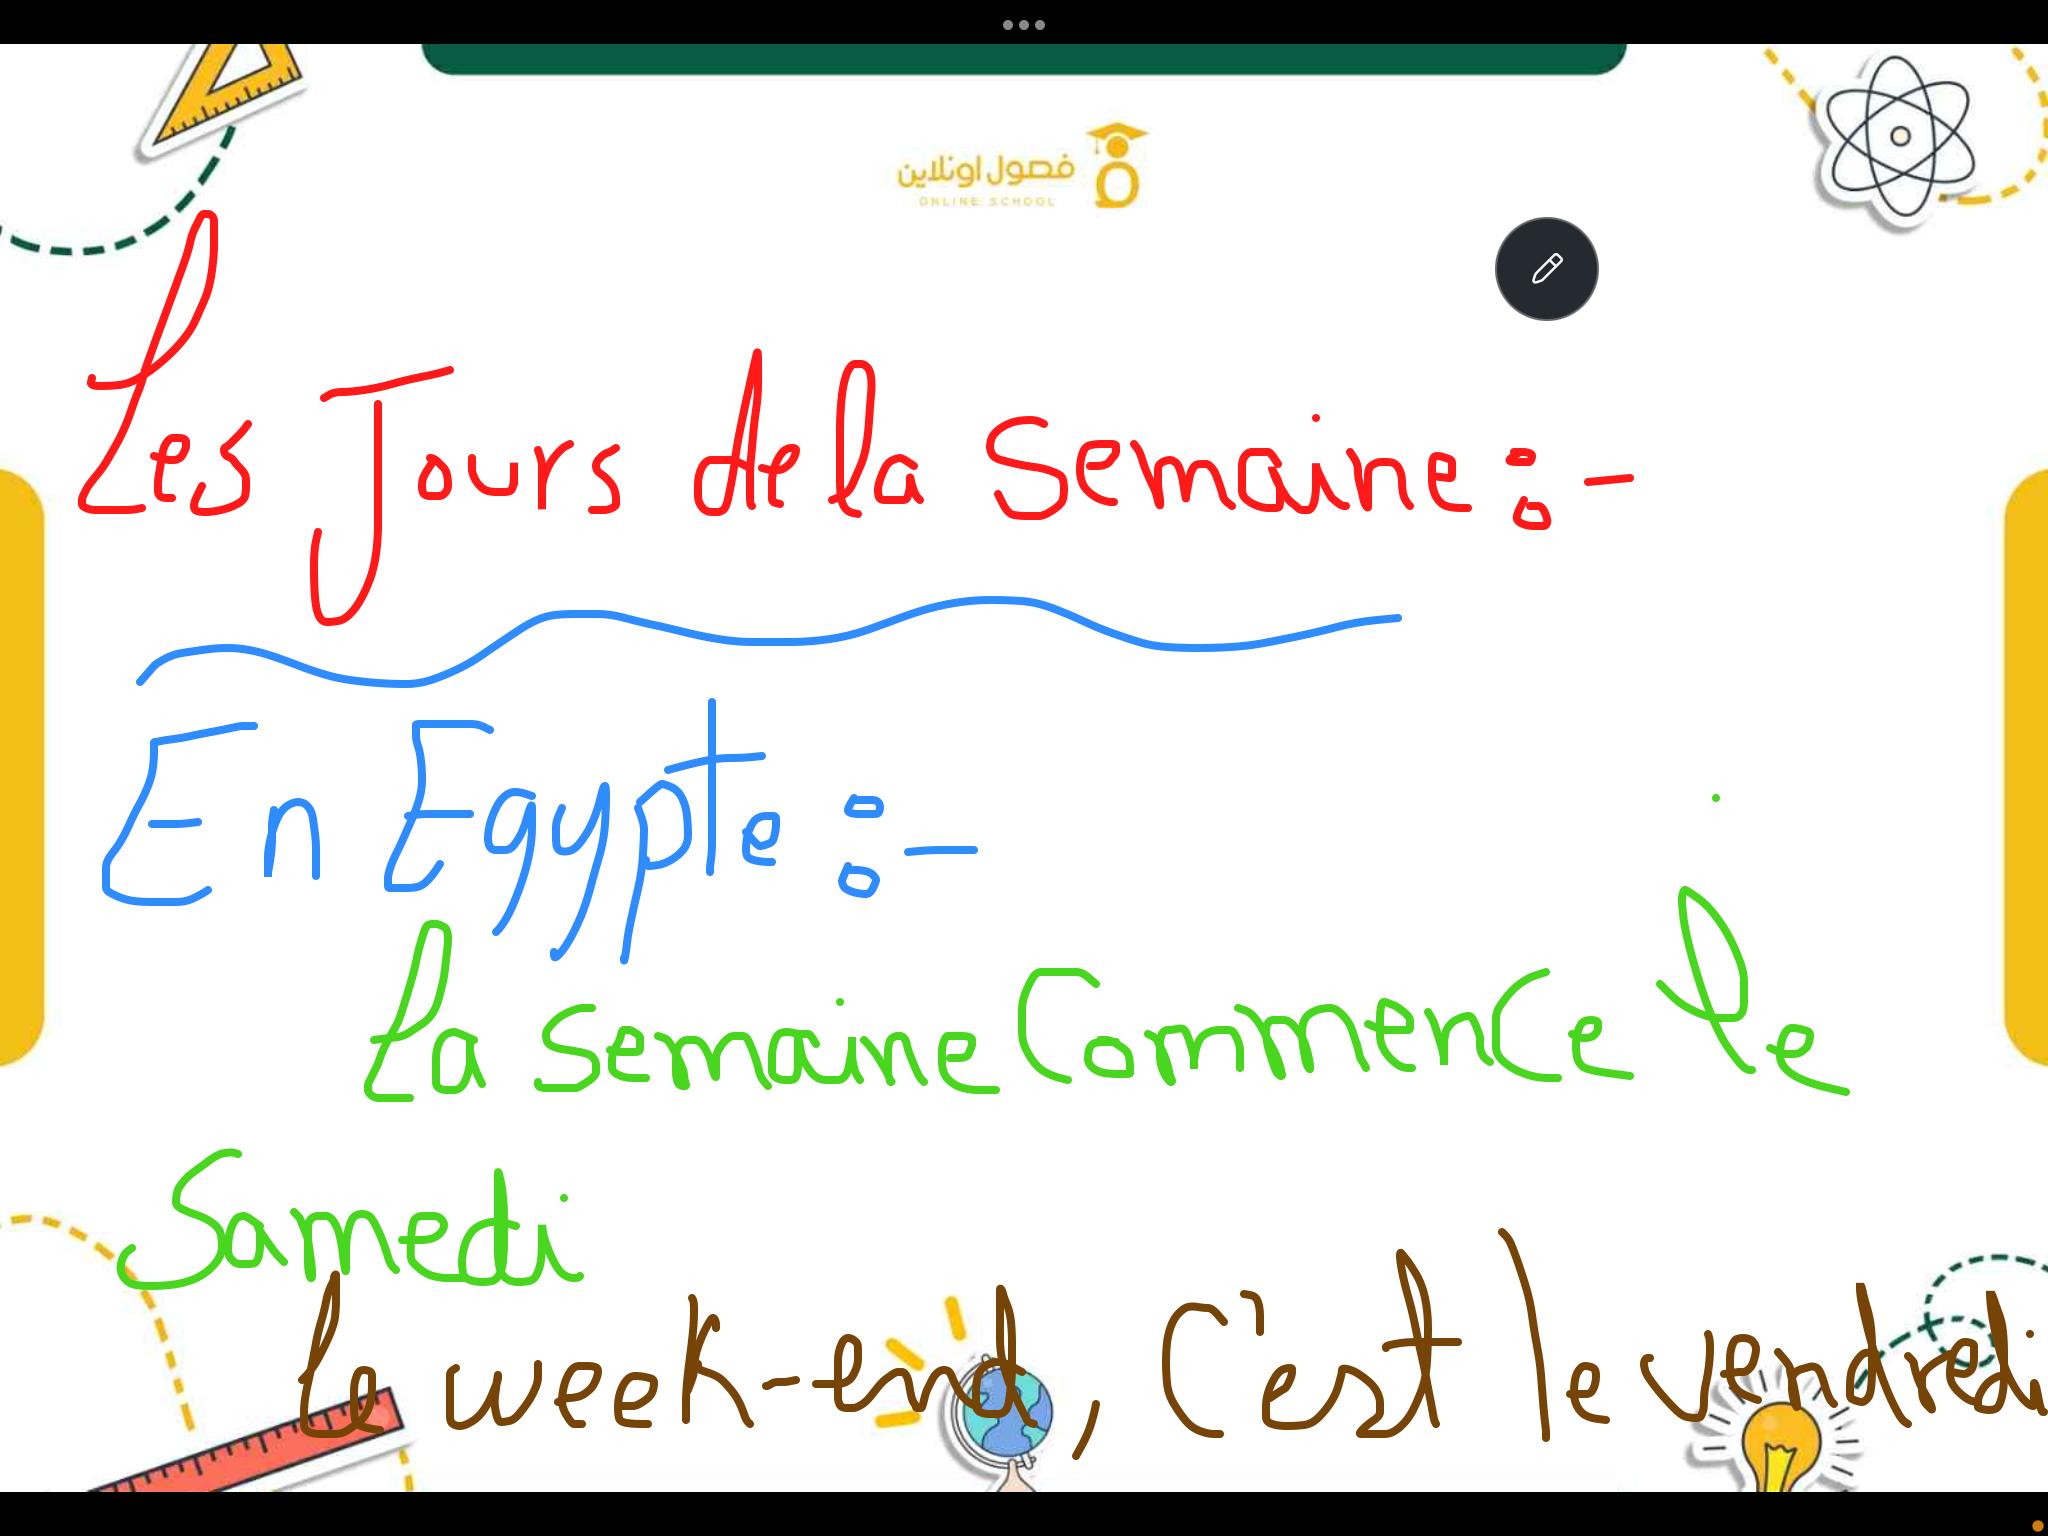 فصول اونلاين
ONLINE SCHOOL
Les Jours de la semaine :-
En Egypte :-
La semaine Commence le
Samedi
le week-end, C'est le vendredi